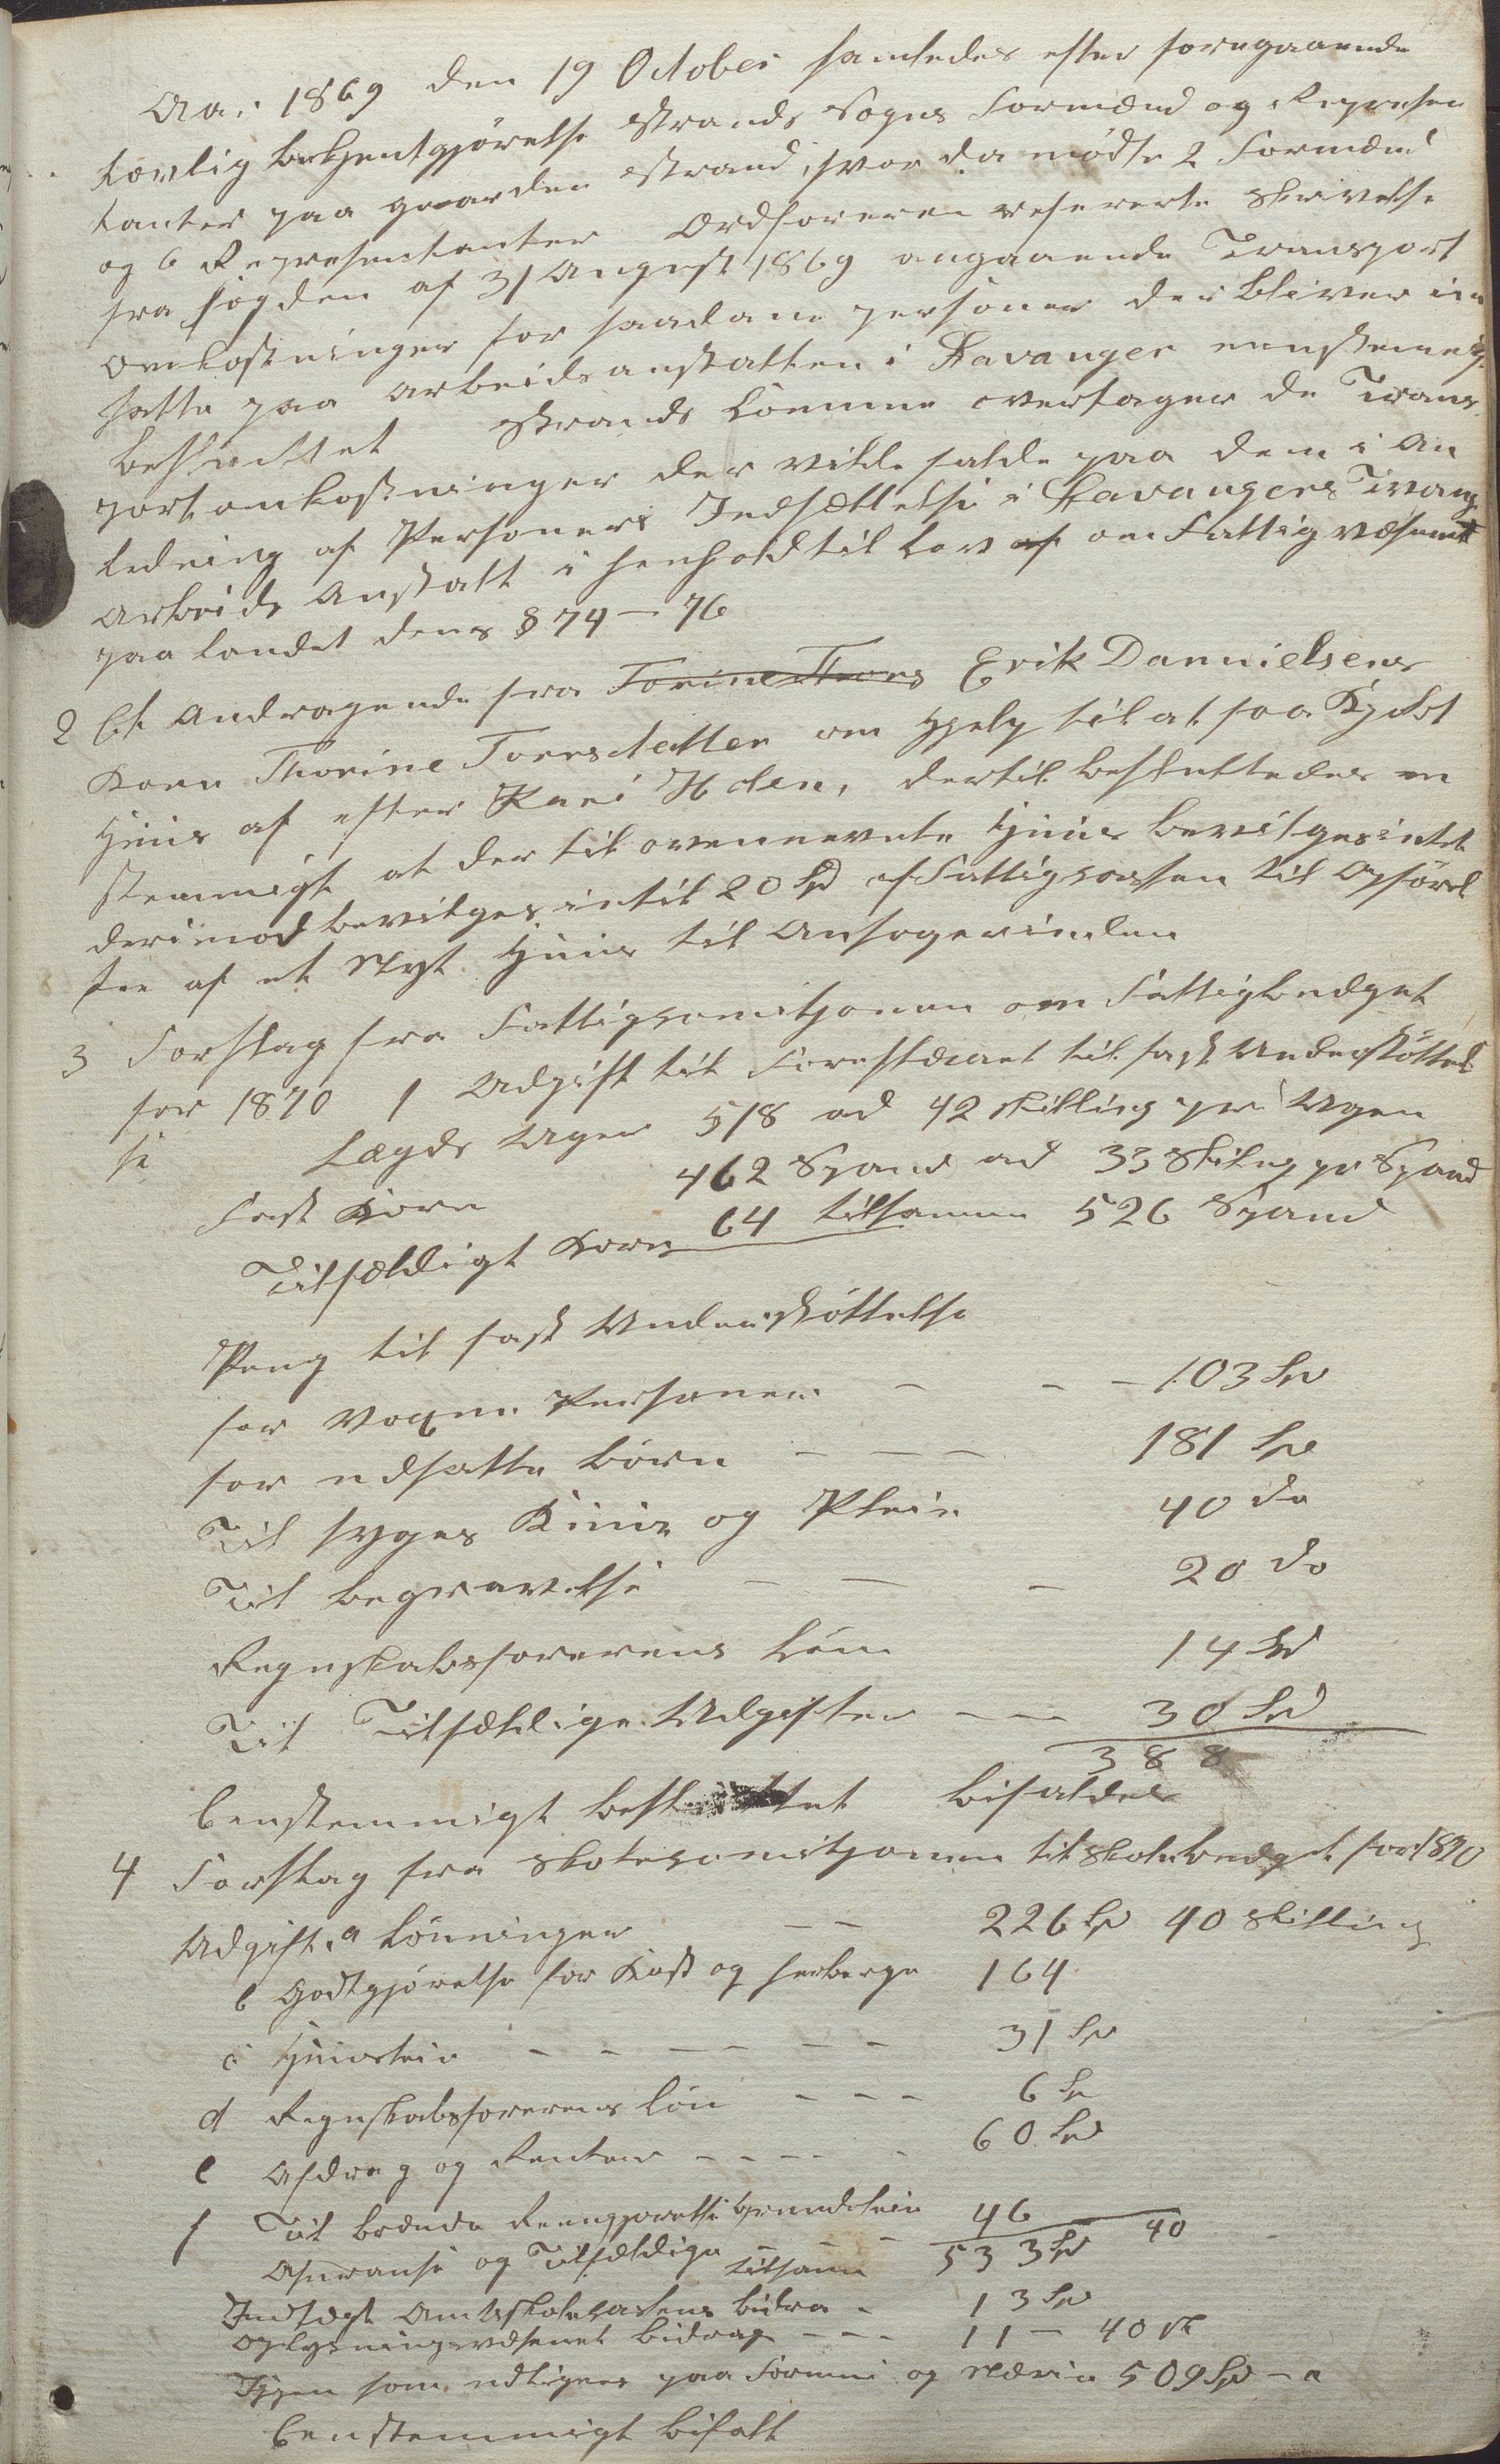 Aar 1869 den 19 October samledes efter foregaaende
lovlig bekjentgjørelse Strands Sogns Formænd og Represen
tanter paa gaarden Strand, hvor da mødte 2 Formænd
og 6 Representanter Ordføreren refererte Skrivelse
fra fogden af 31 August 1869 angaaende Transport
omkostninger for saadane personer der bliver in
satte paa arbeidsanstalten i Stavanger eenstemig
besluttet Strands Komune overtager de Trans
portomkostninger der vilde falde paa dem i An
ledning af Personers Indsættelse i Stavangers Tvangs
Arbeids Anstalt i henhold til Lov af om Fattigvæsenet
paa Landet dens § 74 – 76
2 Et Andragende fra Torine Thors Erik Dannielsens
Kone Thorine Toresdatter om Hjelp til at faa Kjøbt
Huus af efter Kari Holen, dertil besluttedes en
stemmigt at der til ovennevnte Huus bevilges intet
derimod bevilges intil 20 Spd af Fattigcassen til Opførel
sen af et Nyt Huus til Ansøgerinden
3 Forslag fra Fattigcomitjonen om Fattigbudget
for 1870 1 Udgift til Forestaaent til fast Understøttel
se Lægds Uger 518 ad 42 skilling pr Ugen
Fast Korn 462 Spand ad 33 Skiling pr Spand
Tilfældigt Korn 64 tilsamen 526 Spand
Peng til fast Understøttelse
for Voxne Personer – – – 103 Spd
for udsatte børn – – – 181 Spd
Til syges Kuur og Pleie 40 do
Til begravelse – – – 20 do
Regnskabsførerens Løn 14 Spd
Til Tilfældige Udgifter – – 30 Spd
388
Eenstemmigt besluttet bifaldes
4 Forslag fra Skolecomitjonen til Skolebudget for 1870
Udgift. a Lønninger – – 226 Spd 40 Skilling
b Godtgjørelse for Kost og herberge 164
c Huusleie – – – – – 31 Spd
d Regnskabsførerens Løn – – – 6 Sp
e Afdrag og Renter – – – – 60 Spd
f Til brænde Reengjørelse Grundleie 46
Asuranse og Tilfældige tilsamen 533 Spd 40
Indtægt Amtsskolecasens bidra – 13 Spd
Oplysningsvæsenet bidrag – – – 11 – 40 sk
Igjen som udlignes paa Formue og Næring 509 Spd – "
Eenstemmigt bifalt